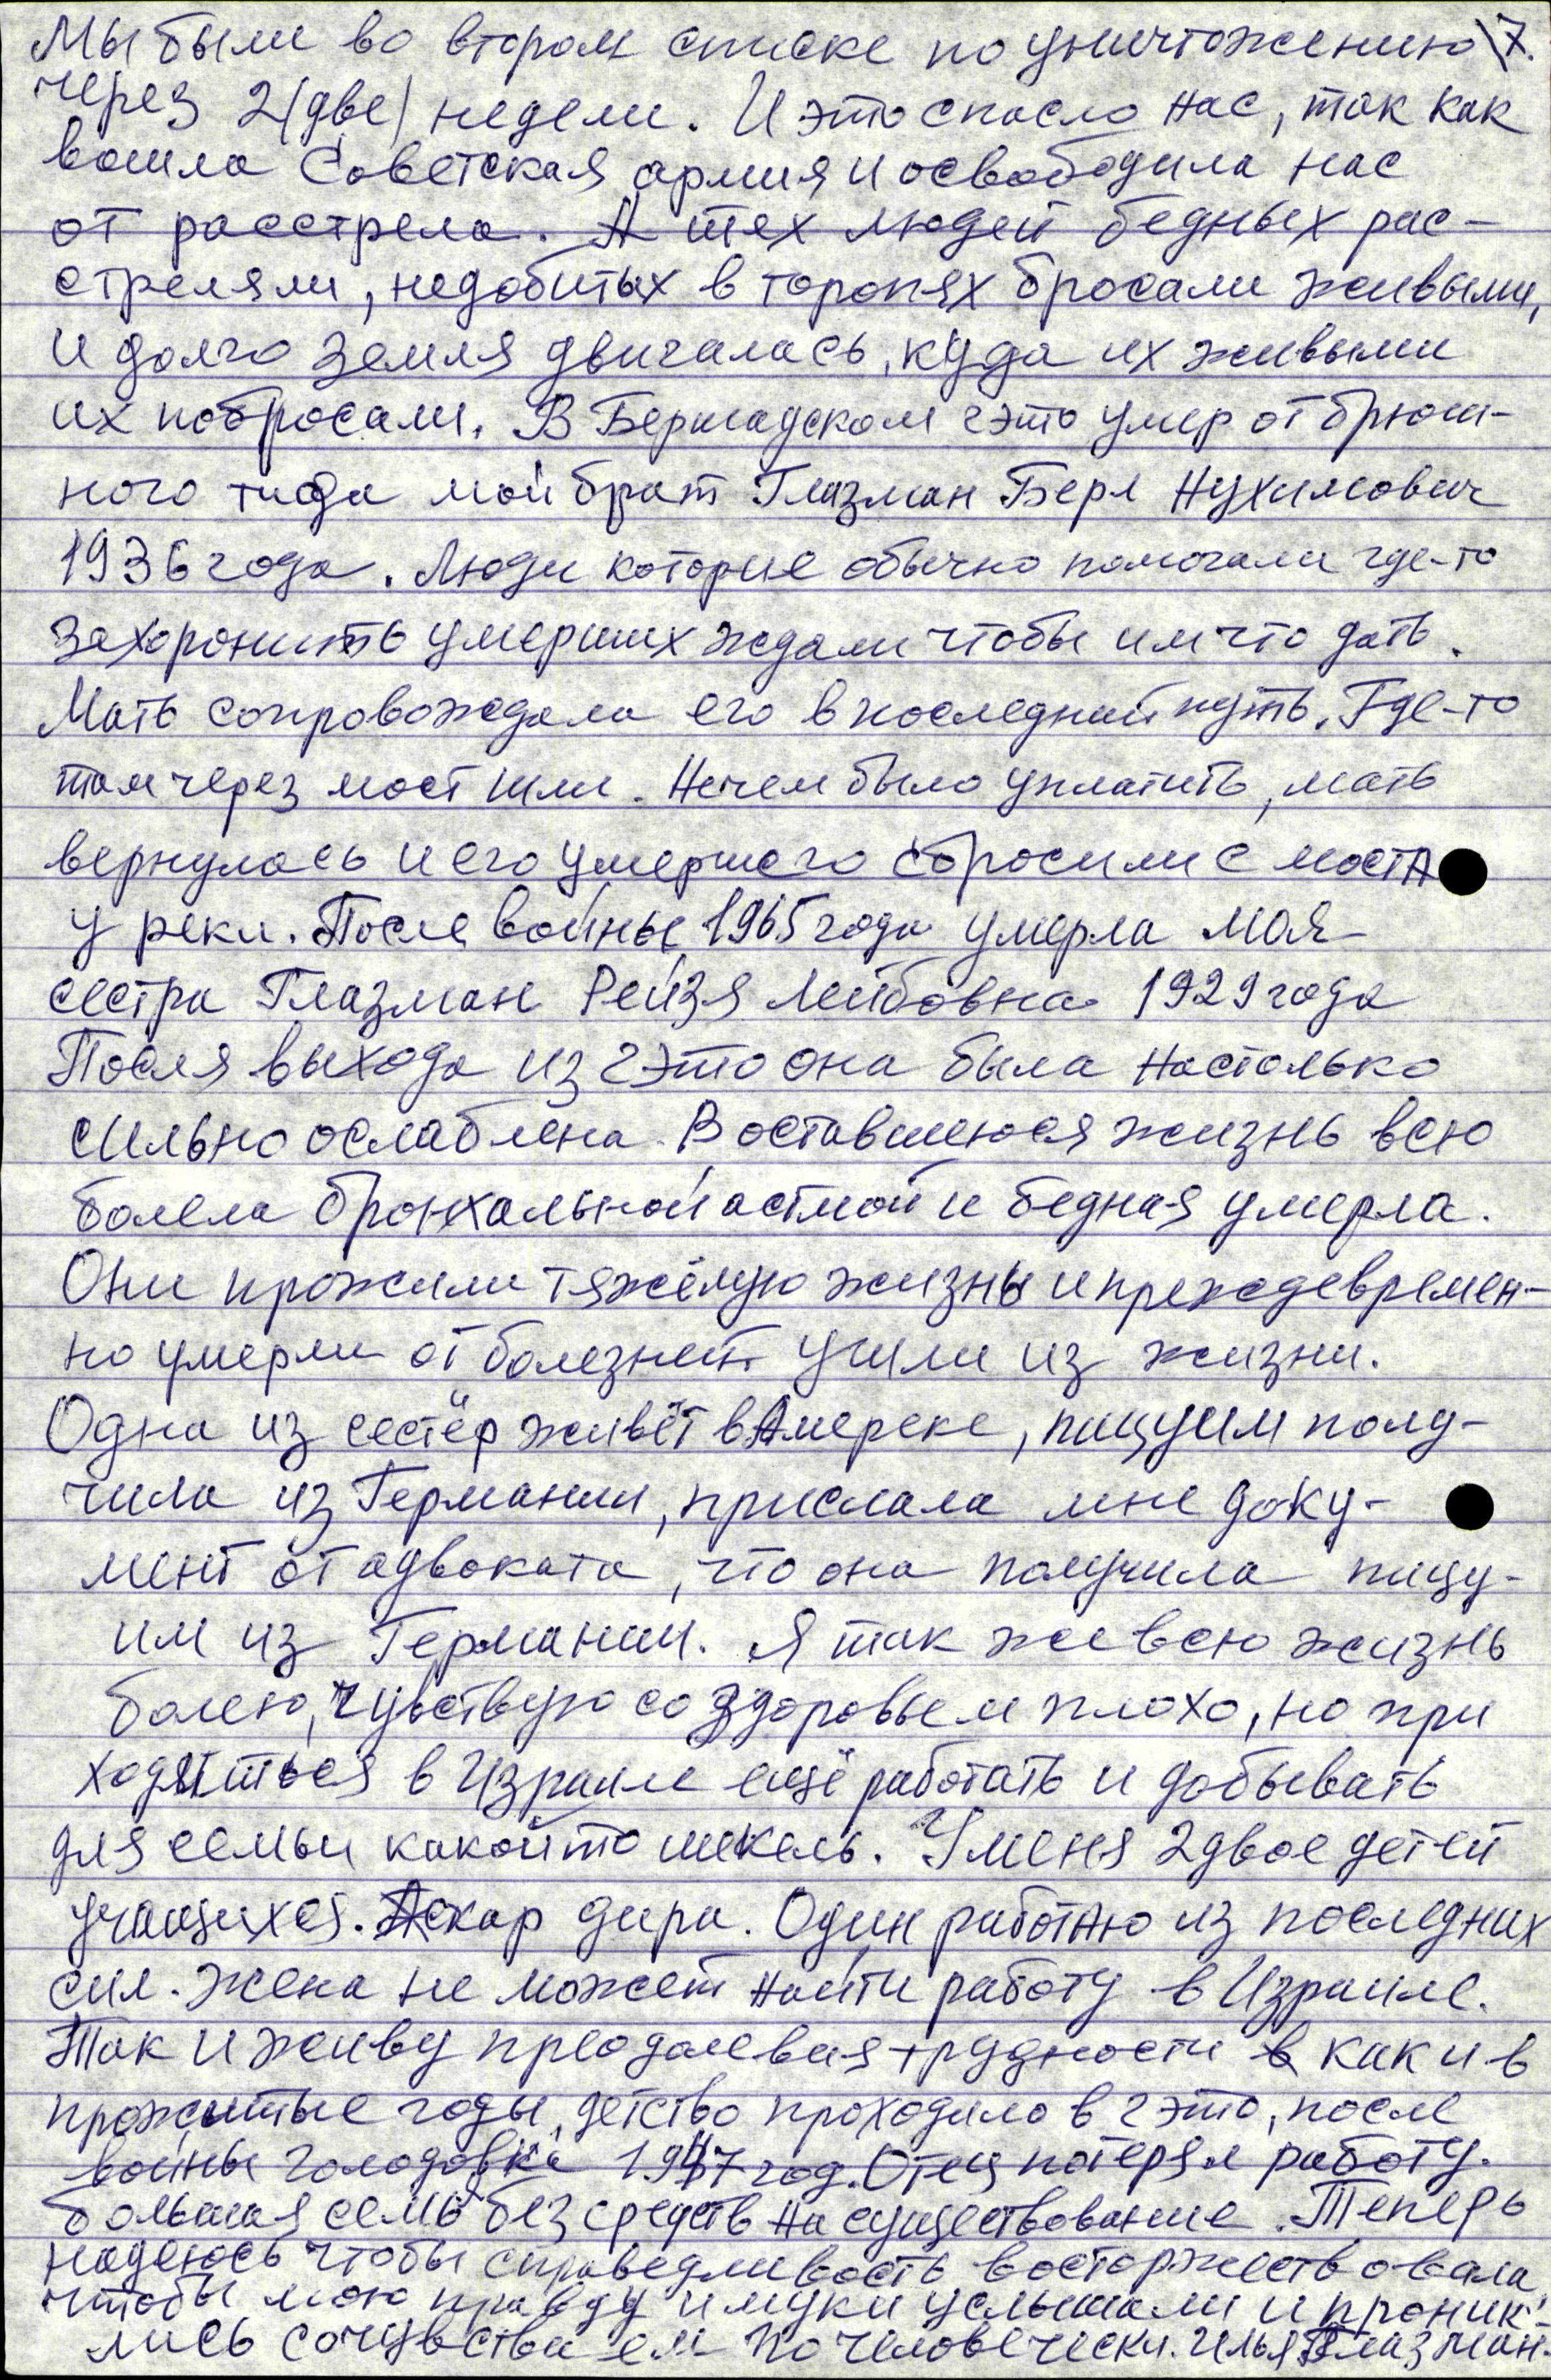 Мы были во втором списке по уничтожению 7.
через 2(две) недели. И это спасло нас, так как
вошла Советская армия и освободила нас
от расстрела. А тех людей бедных рас-
стреляли, недобитых в торопях бросали живыми,
и долго земля двигалась, куда их живыми
их побросали. В Бершадском гэто умер от брюш-
ного тифа мой брат Глазман Берл Нухимович
1936 года. Люди которые обычно помогали где-то
захоронить умерших ждали чтобы им что дать.
Мать сопровождала его в последний путь. Где-то
там через мост шли. Нечем было уплатить, мать
вернулась и его умершего сбросили с моста
у реки. После войны 1965 года умерла моя
сестра Глазман Рейзя Лейбовна 1929 года
Посля выхода из гэто она была настолько
сильно ослаблена. В оставшеюся жизнь всю
болела бронхальной астмой и бедная умерла.
Они прожили тяжёлую жизнь и преждевремен-
но умерли от болезней ушли из жизни.
Одна из сестёр живёт в Амереке, пицуим полу-
чила из Германии, прислала мне доку-
мент от адвоката, что она получила пицу-
им из Германии. Я так же всю жизнь
болею, чувствую со здоровьем плохо, но при
ходиться в Израиле ещё работать и добывать
для семьи какойто шекель. У меня 2 двое детей
учащихся. Аскар дира. Один работаю из последних
сил. Жена не может найти работу в Израиле.
Так и живу преодалевая трудности в как и в
прожитые годы, детство проходило в гэто, после
войны голодовка 1947 год. Отец потерял работу.
большая семья без средств на существование. Теперь
надеюсь чтобы справедливость восторжествовала
чтобы мою правду и муки услышали и проник-
лись сочувствием по человечески. Илья Глазман.